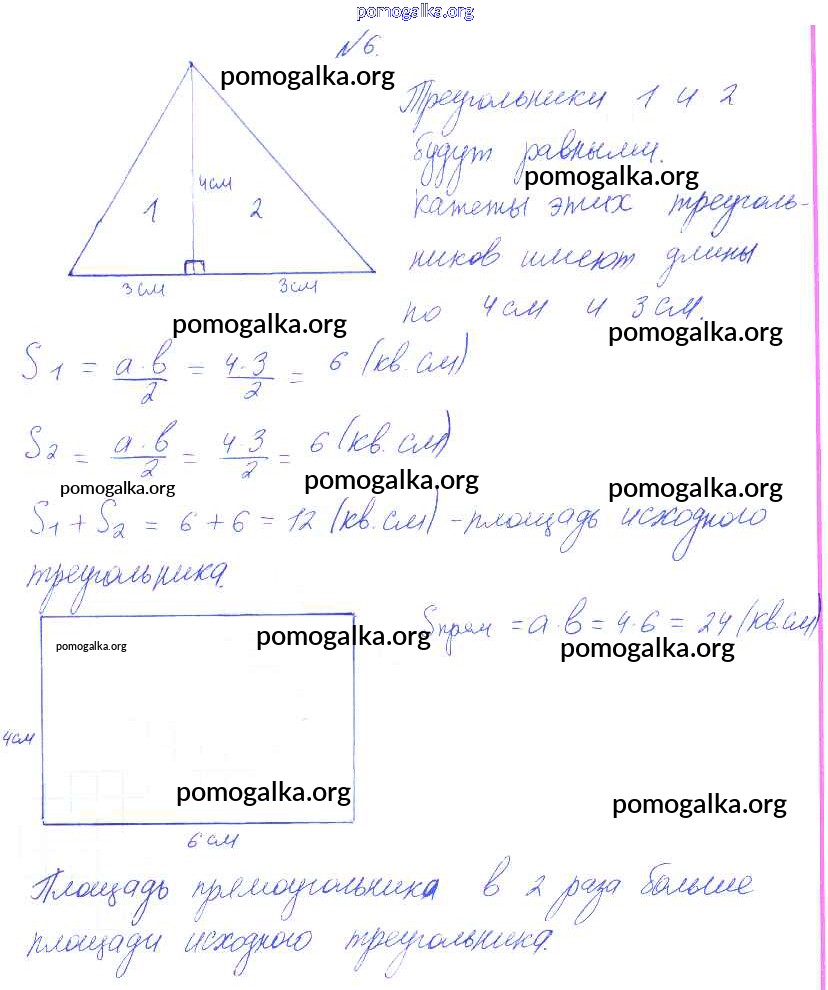 pomogalka.org
№6.
pomogalka.org
Треугольники 1 и 2
будут равными.
pomogalka.org
4см
1
2
катеты этих треуголь-
ников имеют длины
3см
3см
по 4см и 3см.
pomogalka.org
pomogalka.org
S1 = a·b/2 = 4·3/2 = 6 (кв.см)
S2 = a·b/2 = 4·3/2 = 6 (кв.см)
pomogalka.org
pomogalka.org
pomogalka.org
S1 + S2 = 6 + 6 = 12 (кв.см) - площадь исходного
треугольника.
Sпрям = a·b = 4·6 = 24 (кв.см)
pomogalka.org
pomogalka.org
pomogalka.org
4см
pomogalka.org
pomogalka.org
6см
Площадь прямоугольника в 2 раза больше
площади исходного треугольника.